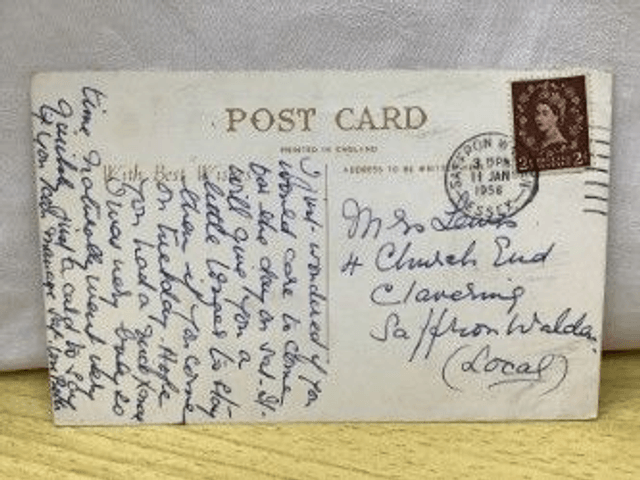 POST CARD
PRINTED IN ENGLAND
With Best Wishes
ADDRESS TO BE WRITTEN
SAFFRON W
3. PM
11 JAN
1956
ESSEX
2 2
Mrs Lewis
4 Church End
Clavering
Saffron Walden
(Local)
I just wondered if you
would care to come
for the day on Sat. It
will give you a
little longer to stay
than if you come
on Tuesday. Hope
you had a
I was very busy so
time naturally went very
quickly. Just a card to say
if you both manage Sat.